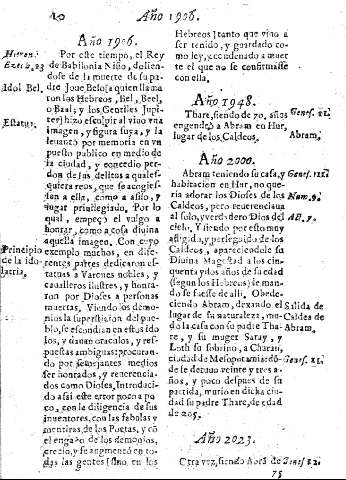 10
Año 1906.
Año 1906.
Hieron.
Ezech. 23
Idol Bel.
Estatua.
Principio
de la ido
latria.
Por este tiempo, el Rey
de Babilonia Niño, dolien-
dose de la muerte de su pa-
dre Joue Belo [a quien llama
ron los Hebreos, Bel, Beel,
o Baal; y los Gentiles Jupi
ter] hizo esculpir al vivo vna
imagen, y figura suya, y la
leuantò por memoria en vn
puesto publico en medio de
la ciudad, y concedio per-
don de sus delitos a quales-
quiera reos, que se acogies-
sen a ella, como a asilo, y
lugar priuilegiado. Por lo
qual, empeçò el vulgo a
honrar, como a cosa diuina
aquella imagen. Con cuyo
exemplo muchos, en dife-
rentes partes dedicaron es-
tatuas a Varones nobles, y
caualleros ilustres, y honra-
ron por Dioses a personas
muertas. Viendo los demo-
nios la supersticion del pue-
blo, se escondian en estos ido
los, y dauan oraculos, y res-
puestas ambiguas: procuran-
do por semejantes medios
ser honrados, y reuerencia-
dos como Dioses. Introduci-
do assi este error poco a po
co, con la diligencia de sus
inuentores, con las fabulas y
mentiras, de los Poetas, y cō
el engaño de los demonios,
crecio, y se augmentò en to-
das las gentes [sino en los
Hebreos] tanto que vino a
ser tenido, y guardado co-
mo ley, y condenado a muer
te el que no se confirmasse
con ella.
Año 1948.
Thare, siendo de 70. años
engendrò a Abram en Hur,
lugar de los Caldeos.
Genes. 11.
Abram.
Año 2000.
Abram teniendo su casa, y
habitacion en Hur, no que-
ria adorar los Dioses de los
Caldeos, pero reuerenciaua
al solo, y verdadero Dios del
cielo. Y siendo por esto muy
afligido, y perseguido de los
Caldeos, apareciendole su
Diuina Magestad a los cin-
quenta y dos años de su edad
(segun los Hebreos) le man-
do se fuesse de alli. Obede-
ciendo Abram, dexando el
lugar de su naturaleza, mu-
dò la casa con su padre Tha-
re, y su muger Saray, y
Loth su sobrino, a Charan,
ciudad de Mesopotamia: dō-
de se detuuo veinte y tres a-
ños, y poco despues de su
partida, murio en dicha ciu
dad su padre Thare, de edad
de 205.
Genes. 12.
Num. 9.
AB. 7.
Salida de
Caldea de
Abram.
Genes. 11.
Año 2023.
Otra vez, siendo Abrā de
Genes. 12.
75